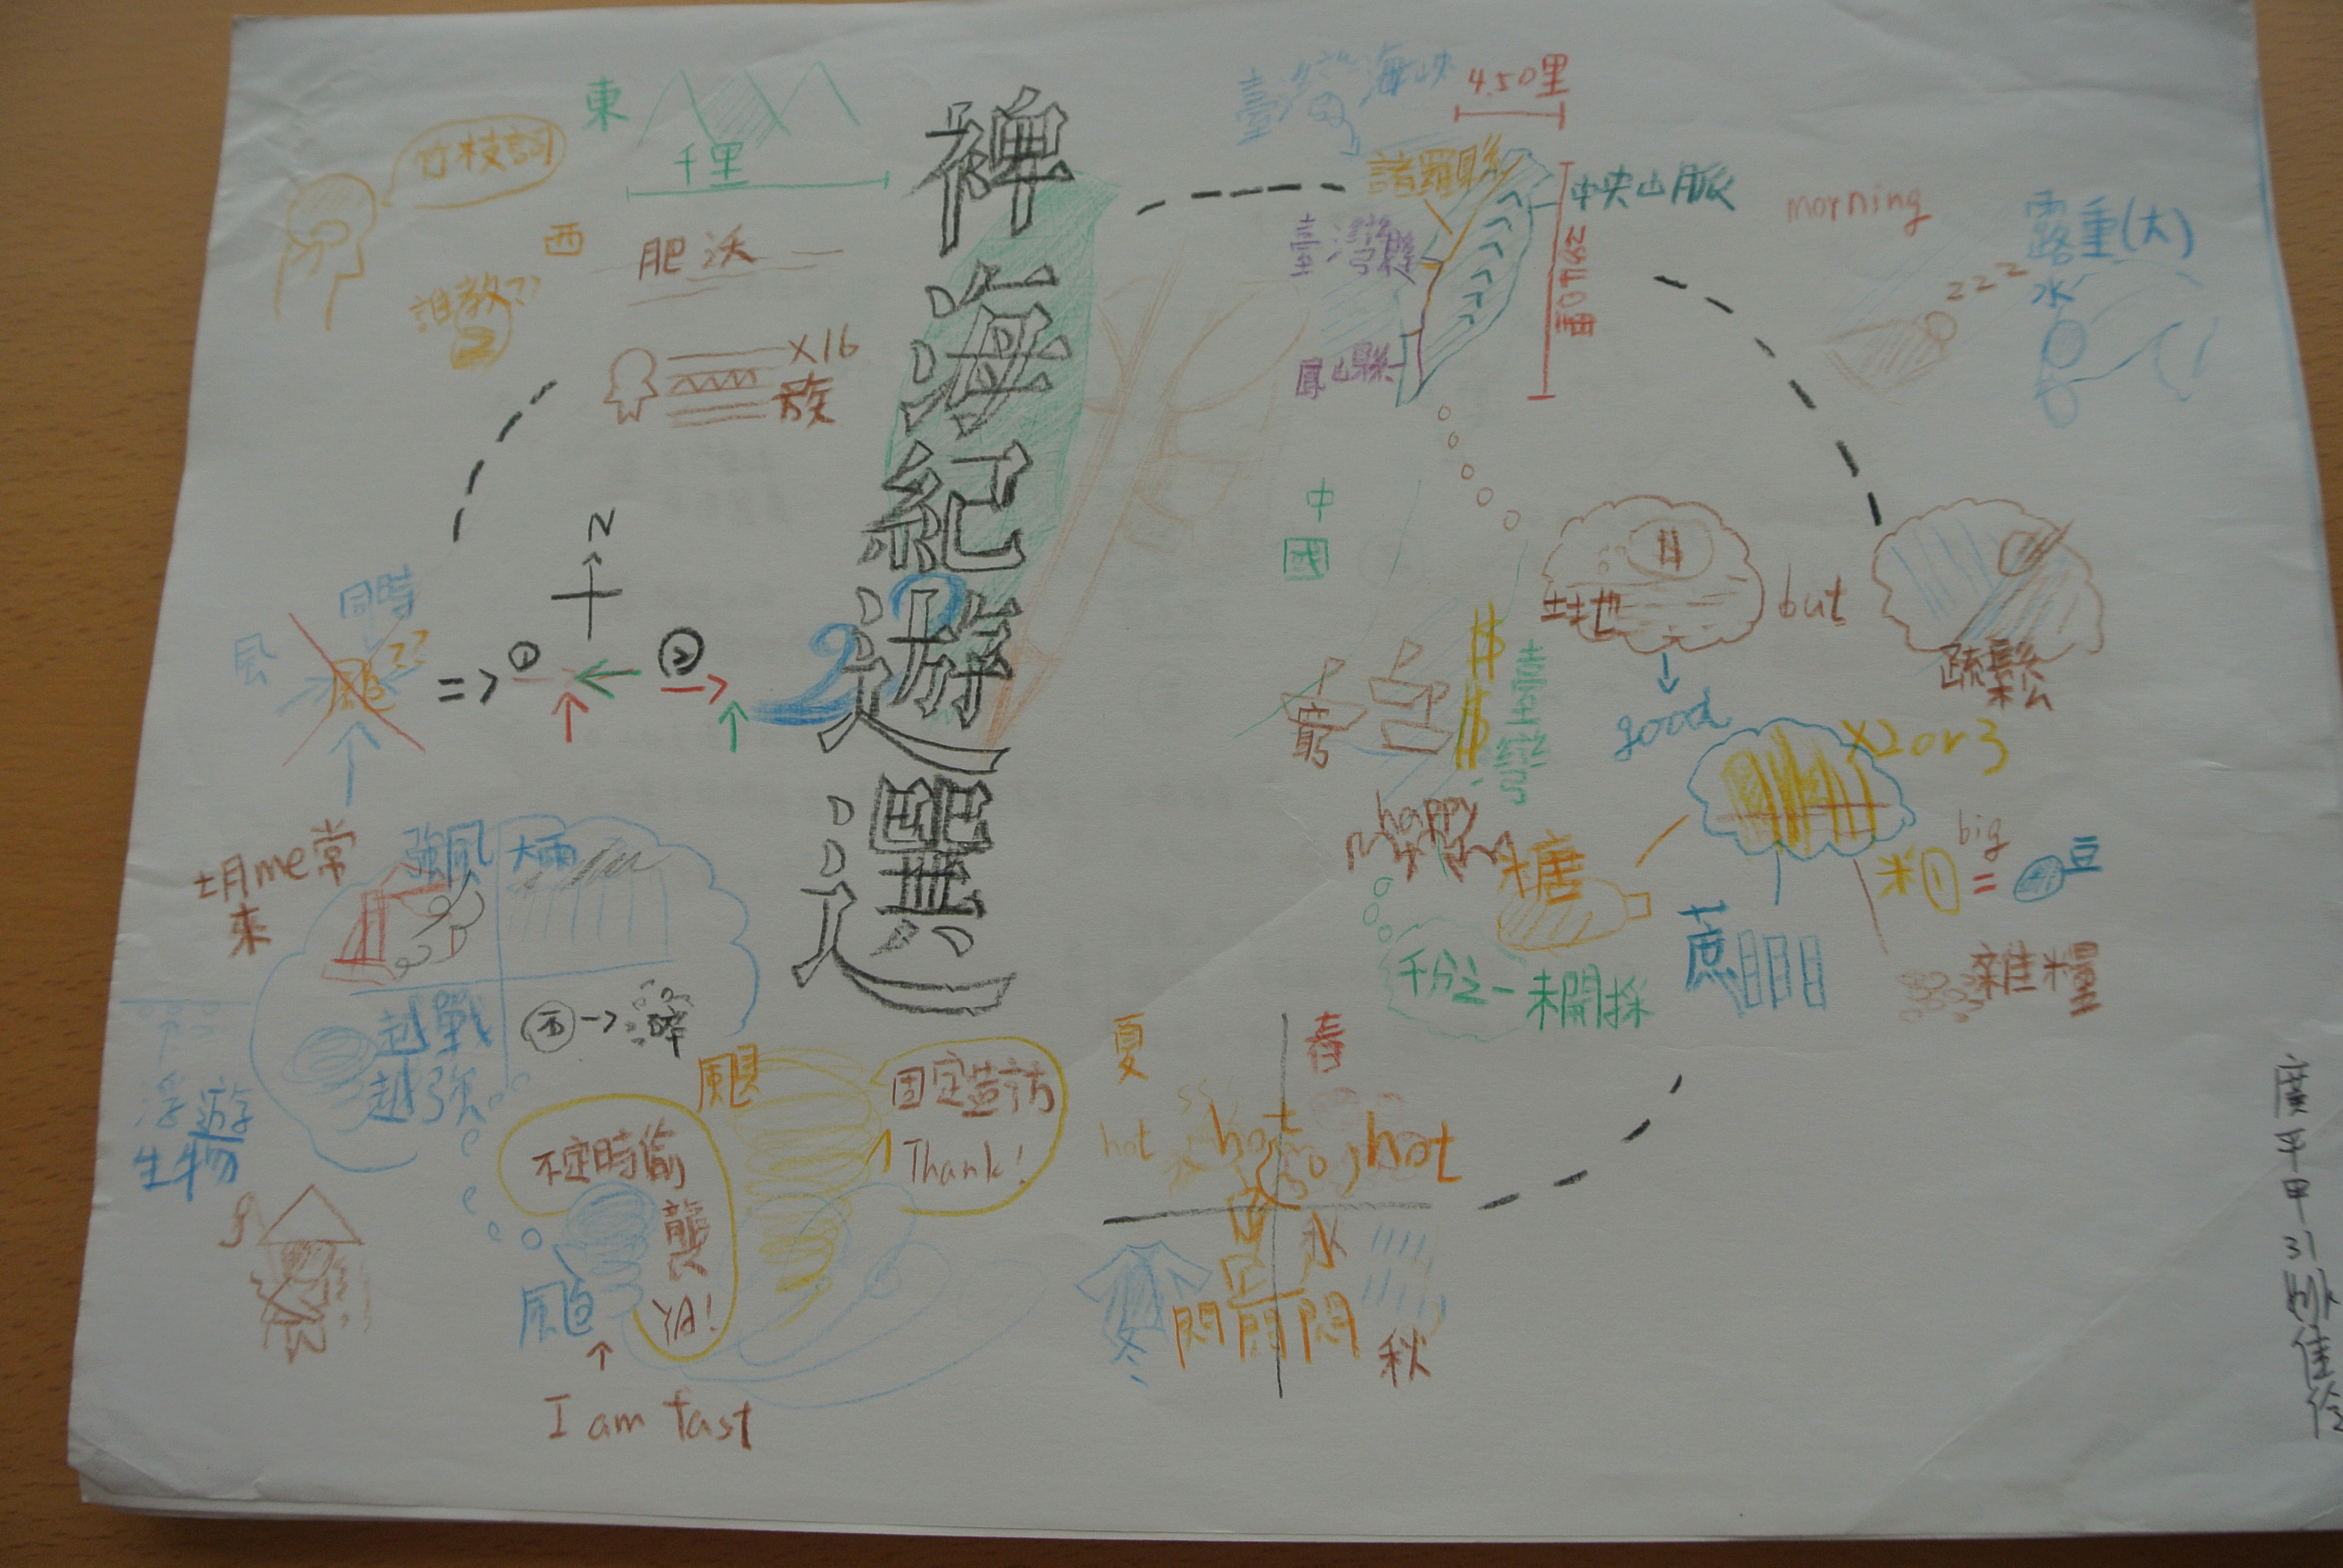 裨海紀遊選
東
千里
竹枝詞
西
肥沃
誰教??
×16
族
N
同時
風
颱??
=> ① ②
??
七月me常
來
強風
大雨
越戰
越強
浮遊
生物
颶
固定造訪
Thank!
不定時偷
襲
YA!
颱
I am fast
臺灣海峽
450里
諸羅縣
中央山脈
臺灣縣
2840里
鳳山縣
morning
露重(大)
水
zzz
中
國
土地
but
疏鬆
good
×2 or 3
窮
$
$
臺灣
happy
糖
big
米 = 豆
蔗
雜糧
千分之一
未開採
夏
春
hot
hot
hot
冬
悶
悶
秋
廣平甲31
佳伶